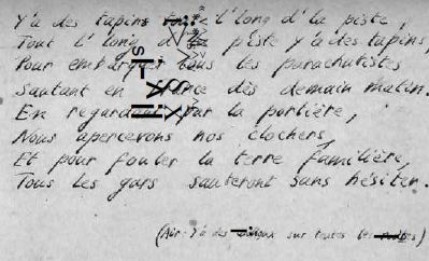 Y'a des tapins l'long d'la piste,
Tout l'long d' piste y'a des tapins,
Pour embarquer tous les parachutistes
Sautant en France dès demain matin.
En regardant par la portière,
Nous apercevons nos clochers,
Et pour fouler la terre familière,
Tous les gars sauteront sans hésiter.
(Air - Y a des sur toutes les)